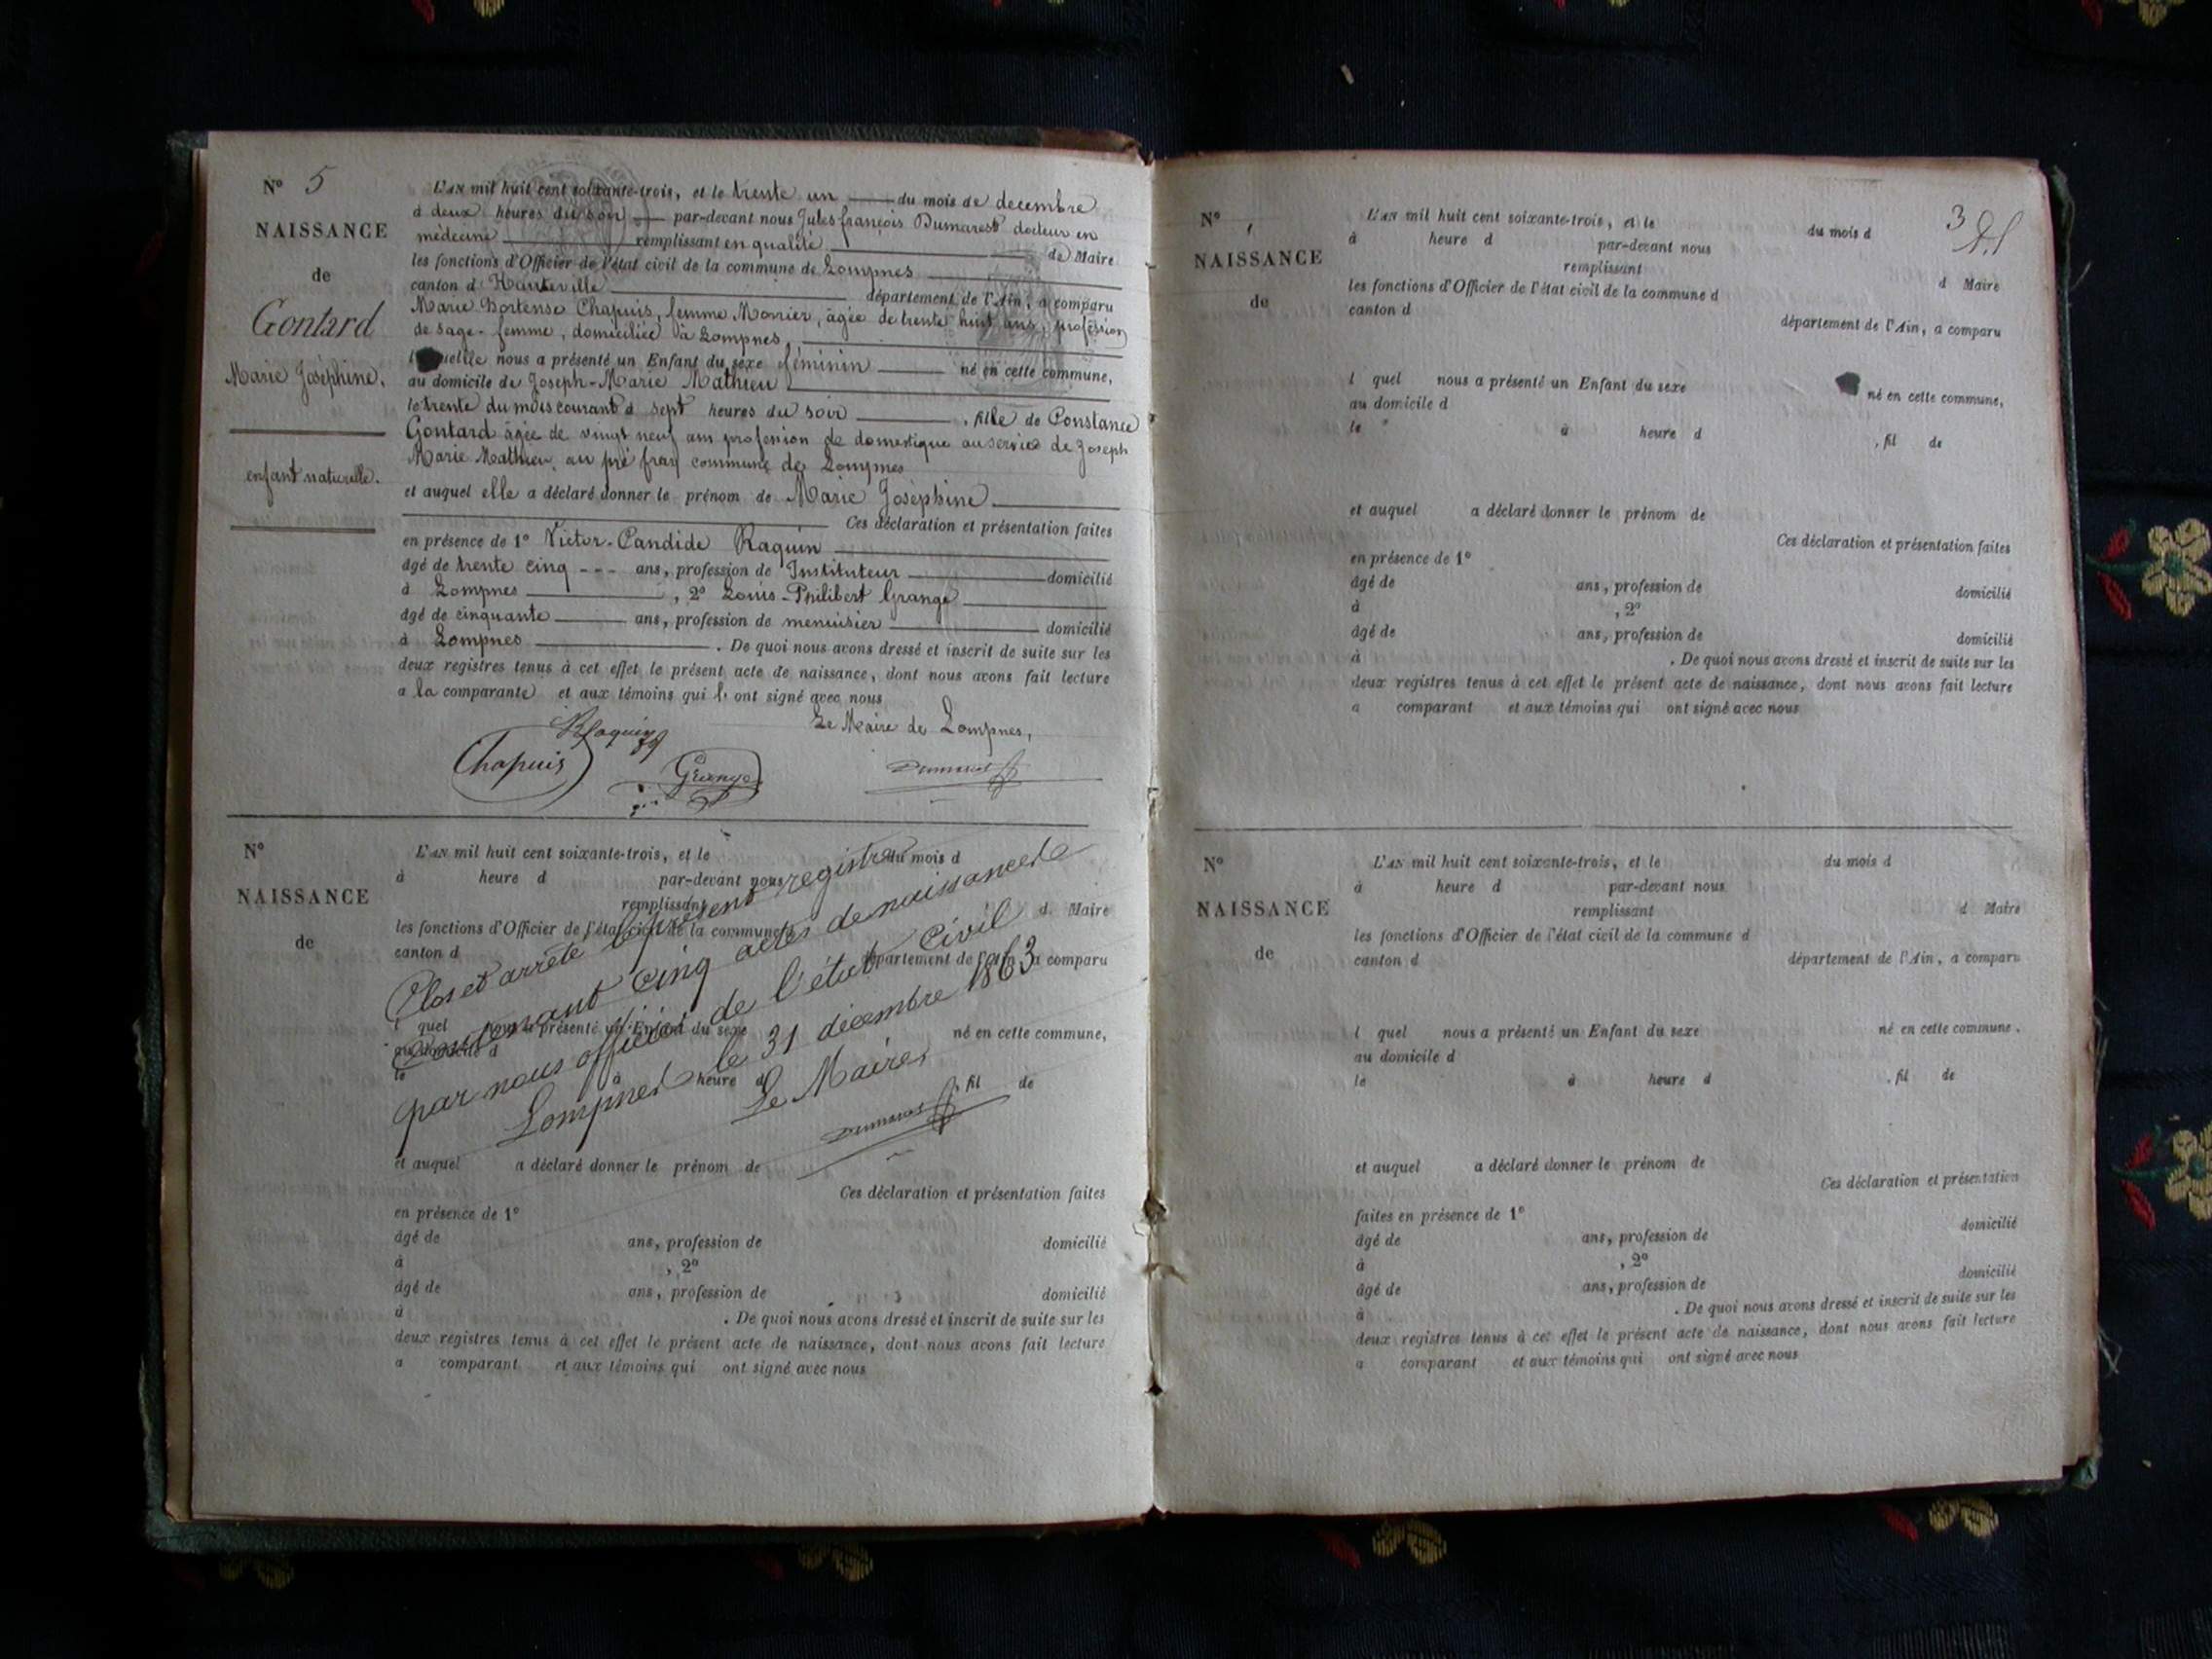 N° 5
NAISSANCE
de
Gontard
Marie Joséphine.
enfant naturelle.
L'AN mil huit cent soixante-trois, et le trente un du mois de decembre
à deux heures du soir par-devant nous Jules françois Dumarest docteur en
médecine remplissant en qualité de Maire
les fonctions d'Officier de l'état civil de la commune de Lompnes
canton d'Hauteville département de l'Ain, a comparu
Marie Hortense Chapuis, femme Monier, âgée de trente huit ans, profession
de sage-femme, domiciliée à Lompnes,
laquelle nous a présenté un Enfant du sexe féminin né en cette commune,
au domicile de Joseph-Marie Mathieu
le trente du mois courant à sept heures du soir, fille de Constance
Gontard âgée de vingt neuf ans profession de domestique au service de Joseph
Marie Mathieu, au pré commune de Lompnes
et auquel elle a déclaré donner le prénom de Marie Joséphine
Ces déclaration et présentation faites
en présence de 1° Victor-Candide Raquin
âgé de trente cinq --- ans, profession de Instituteur domicilié
à Lompnes, 2° Louis-Philibert Grange
âgé de cinquante ans, profession de menuisier domicilié
à Lompnes. De quoi nous avons dressé et inscrit de suite sur les
deux registres tenus à cet effet le présent acte de naissance, dont nous avons fait lecture
a la comparante et aux témoins qui l' ont signé avec nous
Le Maire de Lompnes,
Raquin
Chapuis
Grange
Dumarest
N°
NAISSANCE
de
L'AN mil huit cent soixante-trois, et le du mois d
à heure d par-devant nous
remplissant d Maire
les fonctions d'Officier de l'état civil de la commune d
canton d département de l'Ain, a comparu
l quel nous a présenté un Enfant du sexe né en cette commune,
au domicile d
le à heure d , fil de
Clos et arrêté le présent registre
contenant cinq actes de naissance
par nous officier de l'état civil
Lompnes le 31 décembre 1863
Le Maire,
Dumarest
et auquel a déclaré donner le prénom de
Ces déclaration et présentation faites
en présence de 1°
âgé de ans, profession de domicilié
à , 2°
âgé de ans, profession de domicilié
à . De quoi nous avons dressé et inscrit de suite sur les
deux registres tenus à cet effet le présent acte de naissance, dont nous avons fait lecture
a comparant et aux témoins qui ont signé avec nous
3
N°
NAISSANCE
de
L'AN mil huit cent soixante-trois, et le du mois d
à heure d par-devant nous
remplissant d Maire
les fonctions d'Officier de l'état civil de la commune d
canton d département de l'Ain, a comparu
l quel nous a présenté un Enfant du sexe né en cette commune,
au domicile d
le à heure d , fil de
et auquel a déclaré donner le prénom de
Ces déclaration et présentation faites
en présence de 1°
âgé de ans, profession de domicilié
à , 2°
âgé de ans, profession de domicilié
à . De quoi nous avons dressé et inscrit de suite sur les
deux registres tenus à cet effet le présent acte de naissance, dont nous avons fait lecture
a comparant et aux témoins qui ont signé avec nous
N°
NAISSANCE
de
L'AN mil huit cent soixante-trois, et le du mois d
à heure d par-devant nous
remplissant d Maire
les fonctions d'Officier de l'état civil de la commune d
canton d département de l'Ain, a comparu
l quel nous a présenté un Enfant du sexe né en cette commune.
au domicile d
le à heure d , fil de
et auquel a déclaré donner le prénom de
Ces déclaration et présentation
faites en présence de 1°
âgé de ans, profession de domicilié
à , 2°
âgé de ans, profession de domicilié
à . De quoi nous avons dressé et inscrit de suite sur les
deux registres tenus à cet effet le présent acte de naissance, dont nous avons fait lecture
a comparant et aux témoins qui ont signé avec nous